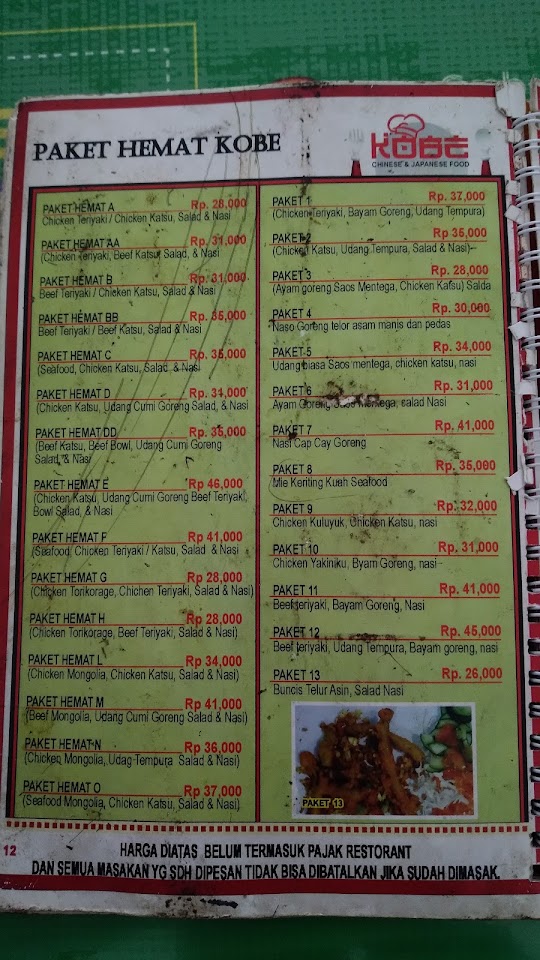 PAKET HEMAT KOBE
KOBE
CHINESE & JAPANESE FOOD
PAKET HEMAT A Rp. 28,000
Chicken Teriyaki / Chicken Katsu, Salad & Nasi
PAKET HEMAT AA Rp. 31,000
(Chicken Teriyaki, Beef Katsu, Salad, & Nasi
PAKET HEMAT B Rp. 31,000
Beef Teriyaki / Chicken Katsu, Salad & Nasi
PAKET HEMAT BB Rp. 35,000
Beef Teriyaki / Beef Katsu, Salad & Nasi
PAKET HEMAT C Rp. 35,000
(Seafood, Chicken Katsu, Salad & Nasi
PAKET HEMAT D Rp. 31,000
(Chicken Katsu, Udang Cumi Goreng Salad, & Nasi
PAKET HEMAT DD Rp. 35,000
(Beef Katsu, Beef Bowl, Udang Cumi Goreng
Salad, & Nasi
PAKET HEMAT E Rp 46,000
(Chicken Katsu, Udang Cumi Goreng Beef Teriyaki,
Bowl Salad, & Nasi
PAKET HEMAT F Rp 41,000
(Seafood, Chicken Teriyaki / Katsu, Salad & Nasi)
PAKET HEMAT G Rp 28,000
(Chicken Torikorage, Chichen Teriyaki, Salad & Nasi)
PAKET HEMAT H Rp 28,000
(Chicken Torikorage, Beef Teriyaki, Salad & Nasi)
PAKET HEMAT L Rp 34,000
(Chicken Mongolia, Chicken Katsu, Salad & Nasi)
PAKET HEMAT M Rp 41,000
(Beef Mongolia, Udang Cumi Goreng Salad & Nasi)
PAKET HEMAT N Rp 36,000
(Chicken Mongolia, Udag Tempura Salad & Nasi)
PAKET HEMAT O Rp 37,000
(Seafood Mongolia, Chicken Katsu, Salad & Nasi)
PAKET 1 Rp. 37,000
(Chicken Teriyaki, Bayam Goreng, Udang Tempura)
PAKET 2 Rp 35,000
(Chicken Katsu, Udang Tempura, Salad & Nasi)
PAKET 3 Rp. 28,000
(Ayam goreng Saos Mentega, Chicken Katsu) Salda
PAKET 4 Rp. 30,000
Naso Goreng telor asam manis dan pedas
PAKET 5 Rp. 34,000
Udang biasa Saos mentega, chicken katsu, nasi
PAKET 6 Rp. 31,000
Ayam Goreng Saos Mentega, salad Nasi
PAKET 7 Rp. 41,000
Nasi Cap Cay Goreng
PAKET 8 Rp. 35,000
Mie Keriting Kuah Seafood
PAKET 9 Rp. 32,000
Chicken Kuluyuk, Chicken Katsu, nasi
PAKET 10 Rp. 31,000
Chicken Yakiniku, Byam Goreng, nasi
PAKET 11 Rp. 41,000
Beef teriyaki, Bayam Goreng, Nasi
PAKET 12 Rp. 45,000
Beef teriyaki, Udang Tempura, Bayam goreng, nasi
PAKET 13 Rp. 26,000
Buncis Telur Asin, Salad Nasi
PAKET 13
12
HARGA DIATAS BELUM TERMASUK PAJAK RESTORANT
DAN SEMUA MASAKAN YG SDH DIPESAN TIDAK BISA DIBATALKAN JIKA SUDAH DIMASAK.